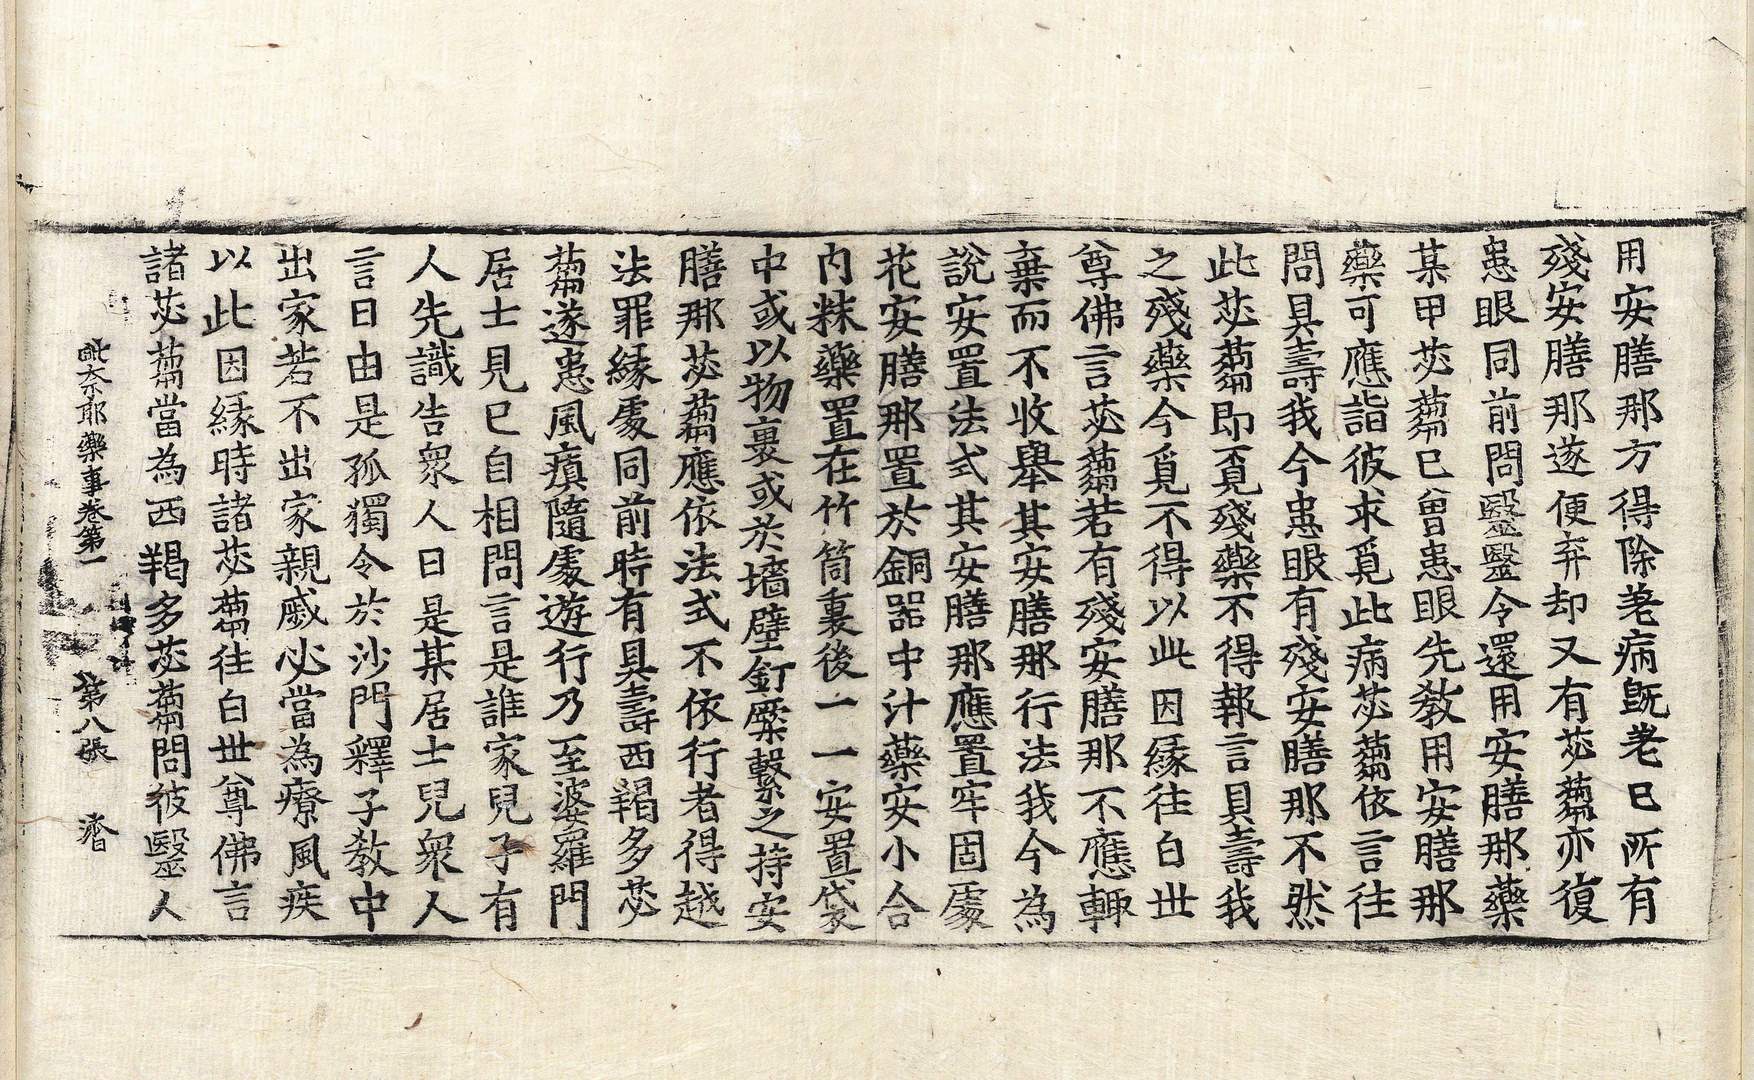 用安膳那方得除差病旣差已所有
殘安膳那遂便弃却又有苾蒭亦復
患眼同前問毉毉令還用安膳那藥
某甲苾蒭已曾患眼先教用安膳那
藥可應詣彼求覓此病苾蒭依言往
問具壽我今患眼有殘安膳那不然
此苾蒭即覓殘藥不得報言具壽我
之殘藥今覓不得以此因縁往白世
尊佛言苾蒭若有殘安膳那不應輙
棄而不收舉其安膳那行法我今為
說安置法式其安膳那應置牢固處
花安膳那置於銅器中汁藥安小合
内粖藥置在竹筒裏後一一安置袋
中或以物裹或於墻壁釘橜繫之持安
膳那苾蒭應依法式不依行者得越
法罪縁處同前時有具壽西羯多苾
蒭遂患風瘨隨處遊行乃至婆羅門
居士見已自相問言是誰家兒子有
人先識告衆人曰是某居士兒衆人
言曰由是孤獨令於沙門釋子教中
出家若不出家親戚必當為療風疾
以此因縁時諸苾蒭往白世尊佛言
諸苾蒭當為西羯多苾蒭問彼毉人
毗奈耶藥事卷第一 第八張 㴉